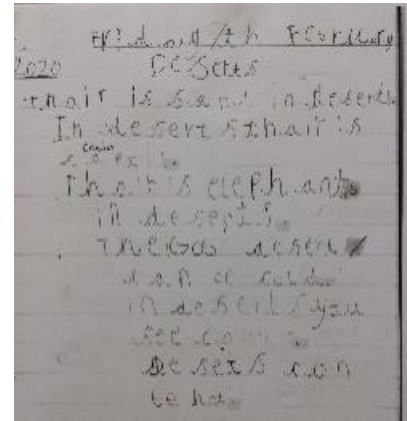 Friday 7th Febriuary
2020 Deserts
thair is sand in deserts
In desert sthair is
Thair is elephants
in deserts.
The Gobi desert
can be cold.
in deserts you
see
deserts can
be hot.